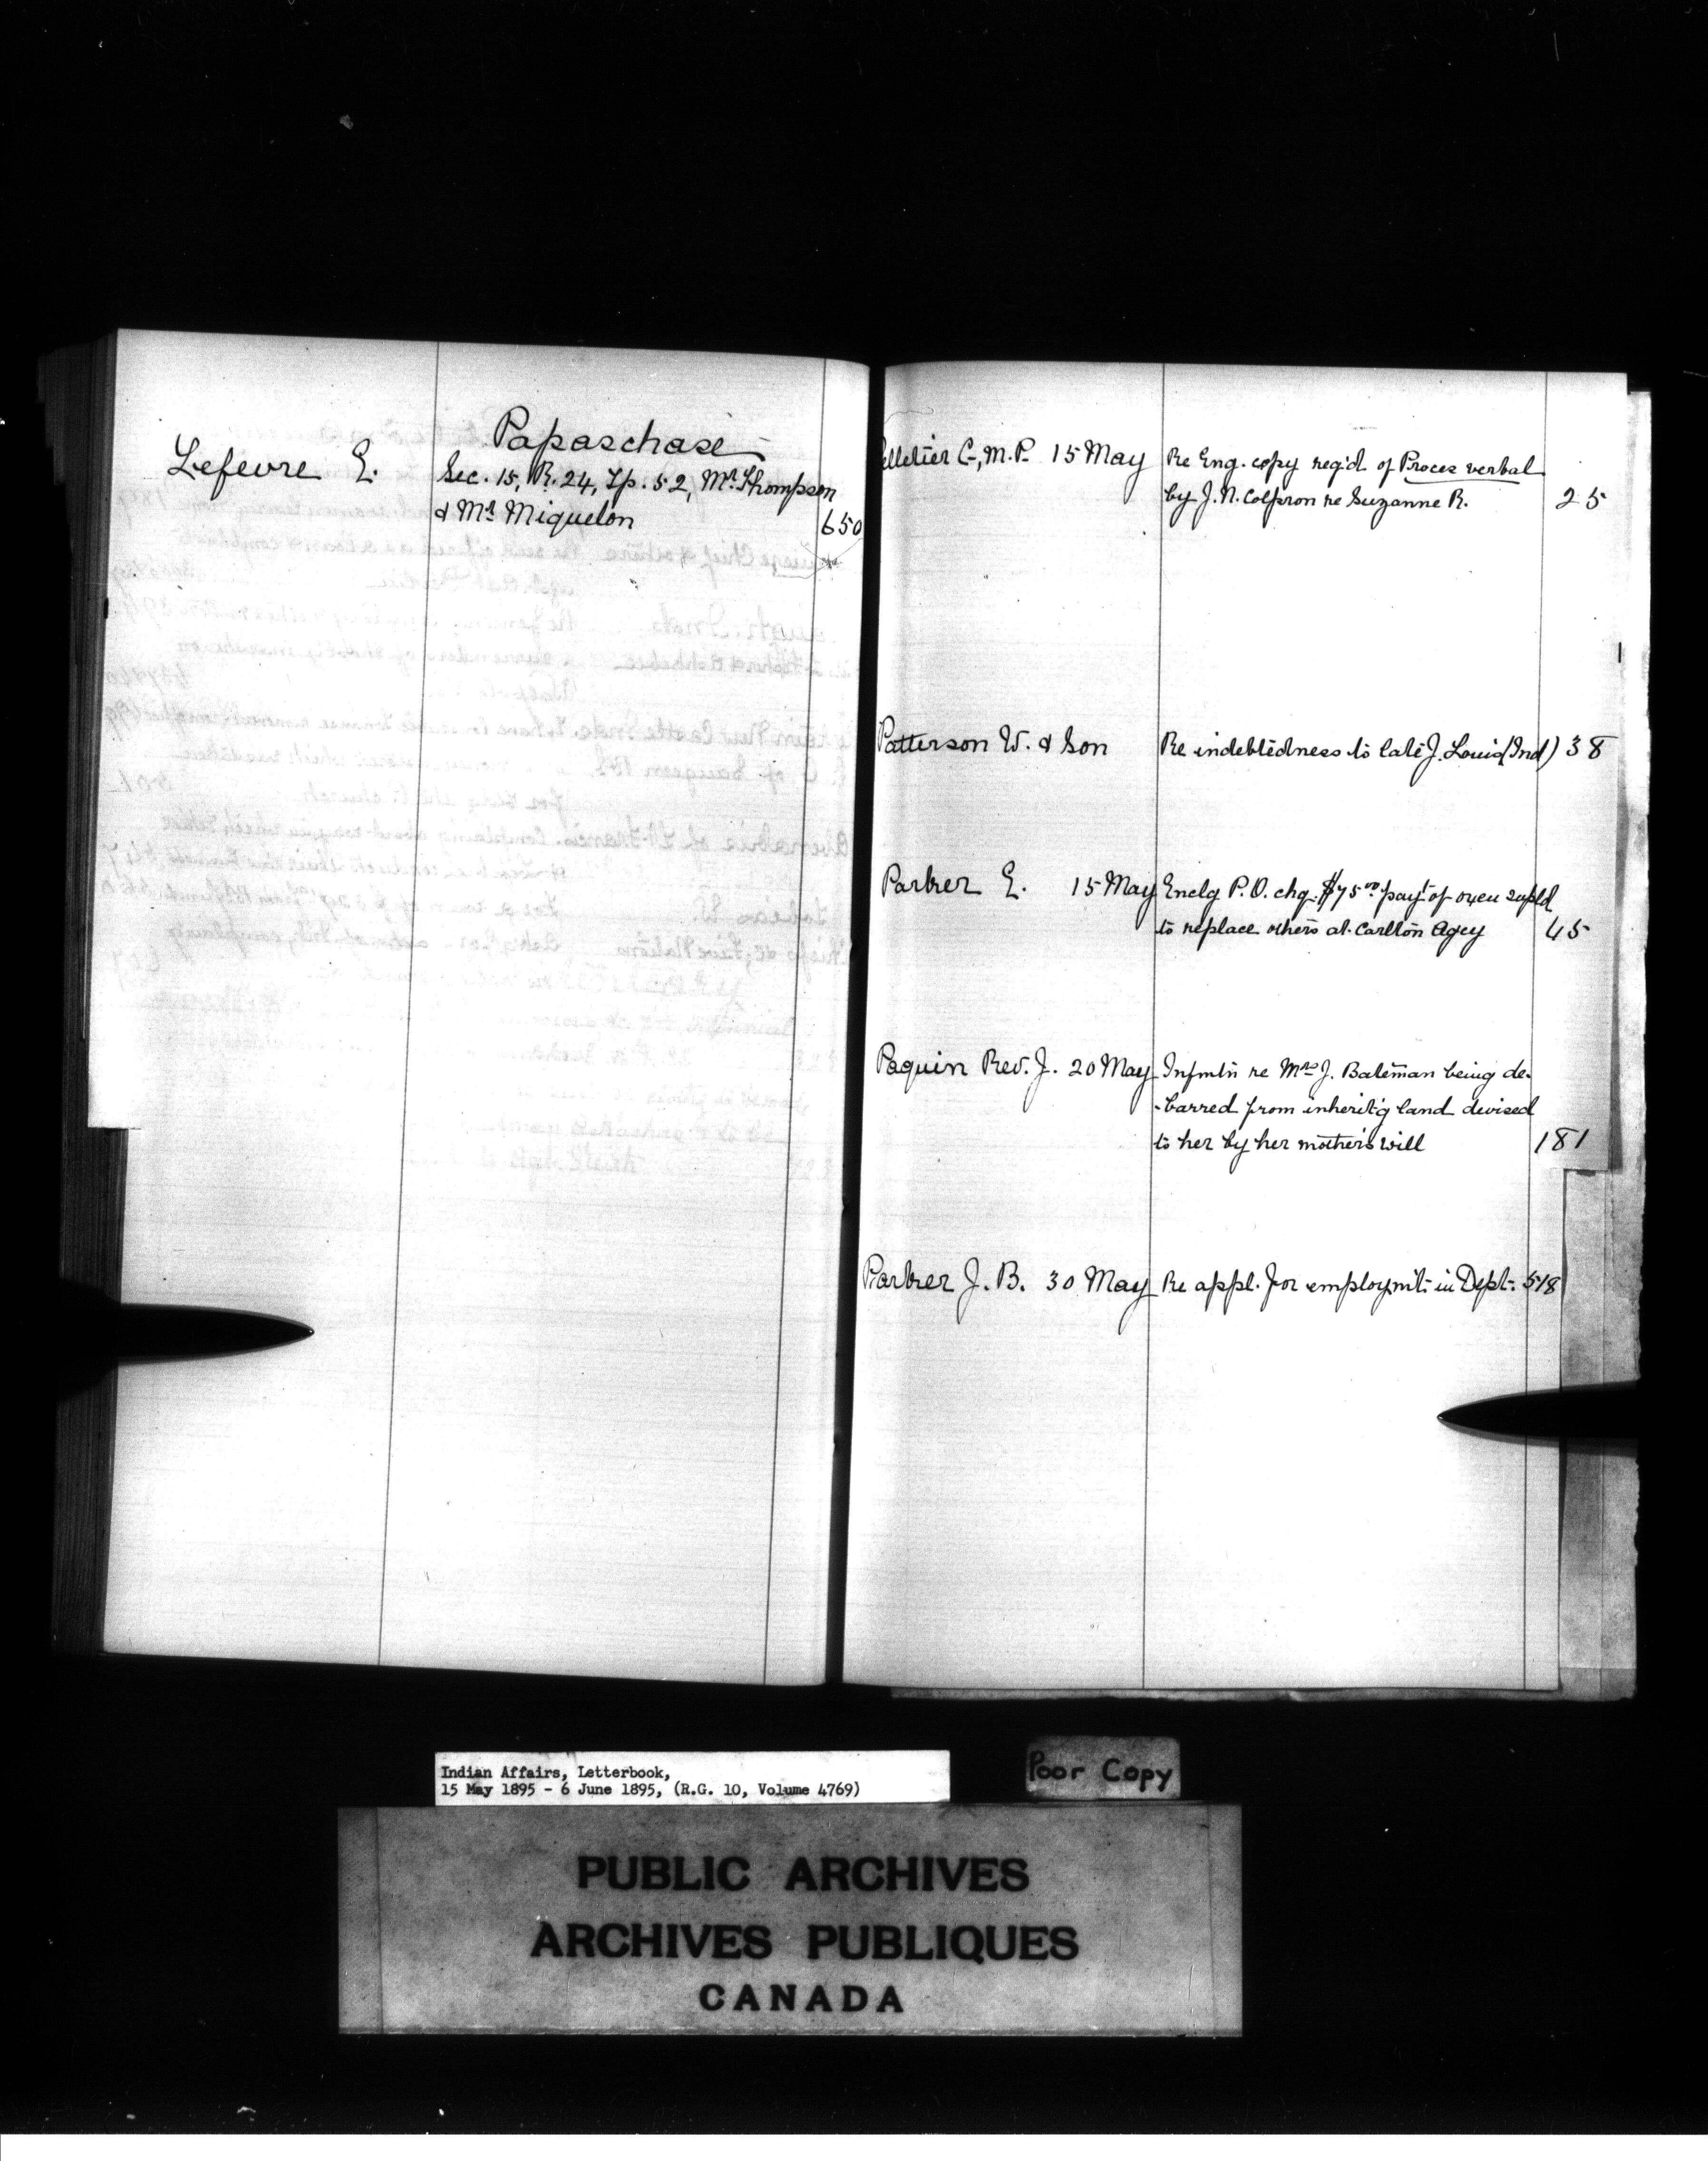 Papaschase
Lefevre E. Sec. 15, R. 24, Tp. 52, Mr. Thompson
& Mr Miquelon 650
elletier C., M.P. 15 May Re Eng. copy reg'd of Proces verbal
by J. N. Colpron re Suzanne R. 25
Patterson W. & Son Re indebtedness to late J. Louis (Ind) 38
Parker E. 15 May Enclg P.O. chq. $75.00 payt of oxen supld
to replace others at Carlton Agcy 45
Paquin Rev. J. 20 May Infmtn re Mrs J. Bateman being de-
-barred from inherit'g land devised
to her by her mother's will 181
Parker J. B. 30 May Re appl. for employm't in Dept. 518
Indian Affairs, Letterbook,
15 May 1895 - 6 June 1895, (R.G. 10, Volume 4769)
Poor Copy
PUBLIC ARCHIVES
ARCHIVES PUBLIQUES
CANADA